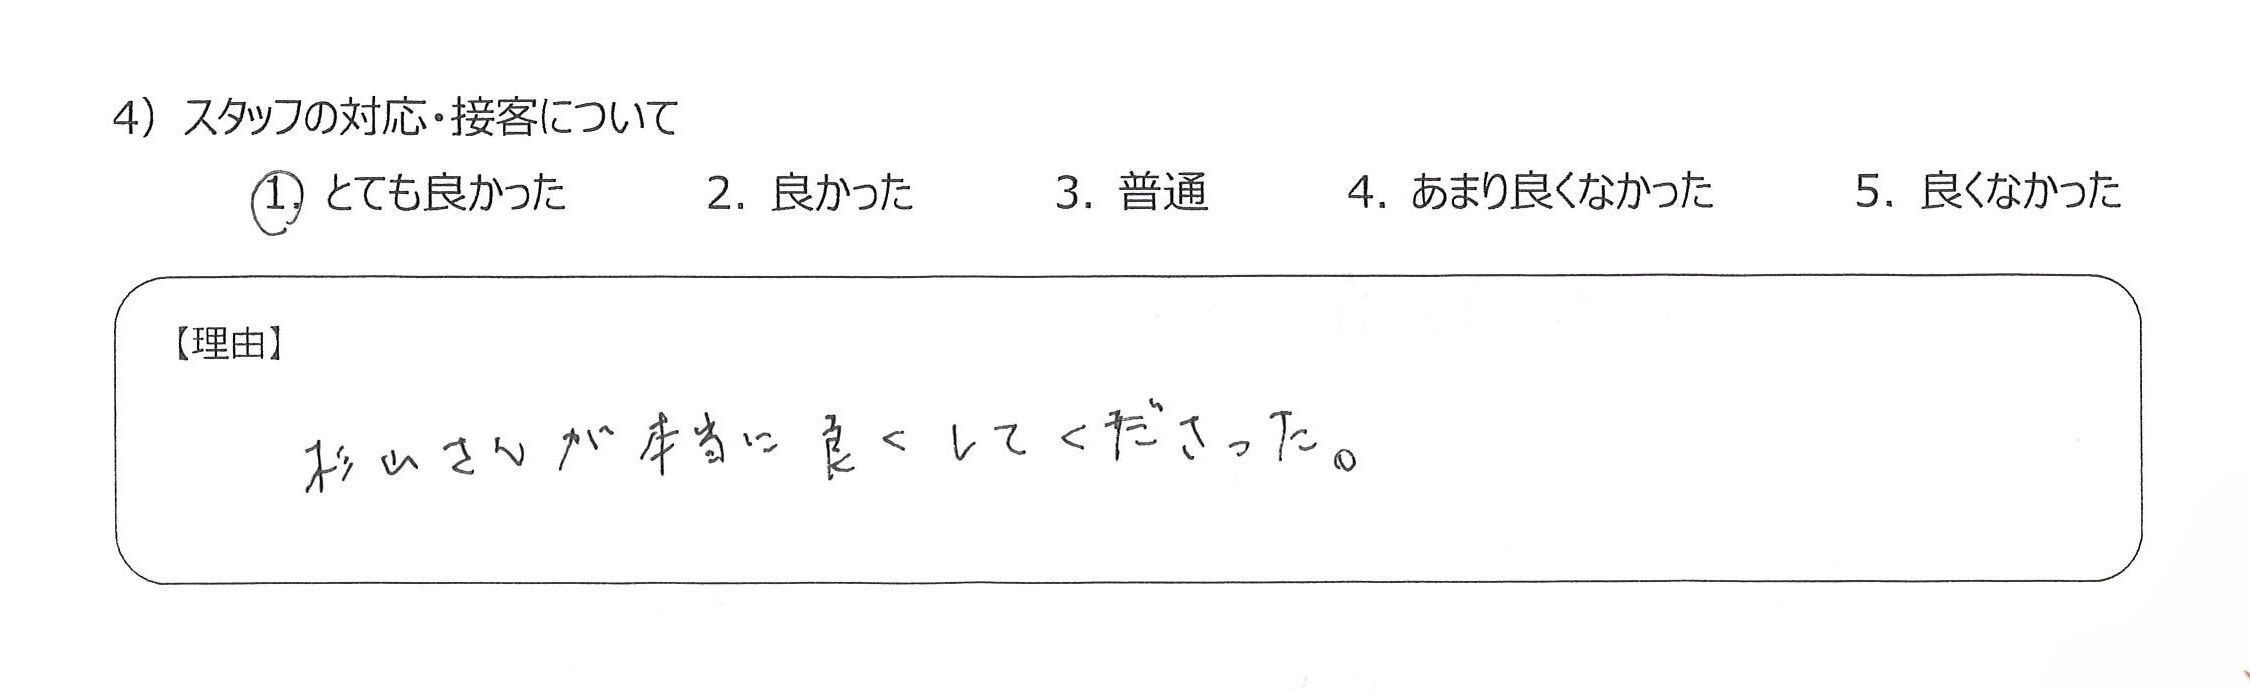 4) スタッフの対応・接客について
1. とても良かった 2. 良かった 3. 普通 4. あまり良くなかった 5. 良くなかった
【理由】
杉山さんが本当に良くしてくださった。